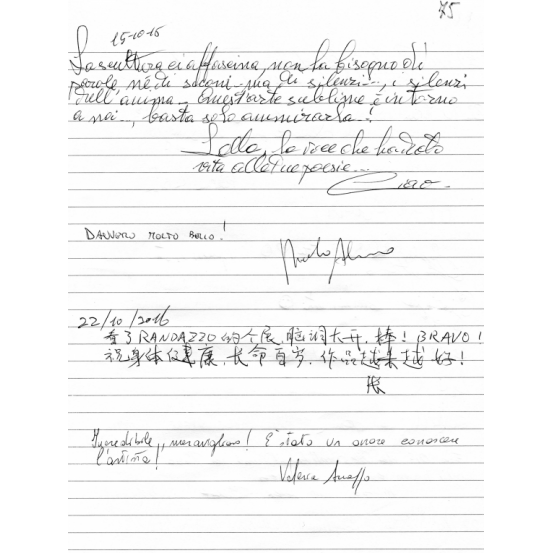 75
15-10-16
La scultura ci affascina, non ha bisogno di
parole, né di suoni... ma di silenzi..., i silenzi
dell'anima. Quest'arte sublime è intorno
a noi..., basta solo ammirarla!
Lella, la voce che ha dato
vita alle tue poesie...
Ciao.
DAVVERO MOLTO BELLO!
22/10/2016
看了RANDAZZO的个展,脑洞大开,棒! BRAVO!
祝身体健康,长命百岁,作品越来越好!
张
Incredibile, meraviglioso! È stato un onore conoscere
l'artista!
Valeria